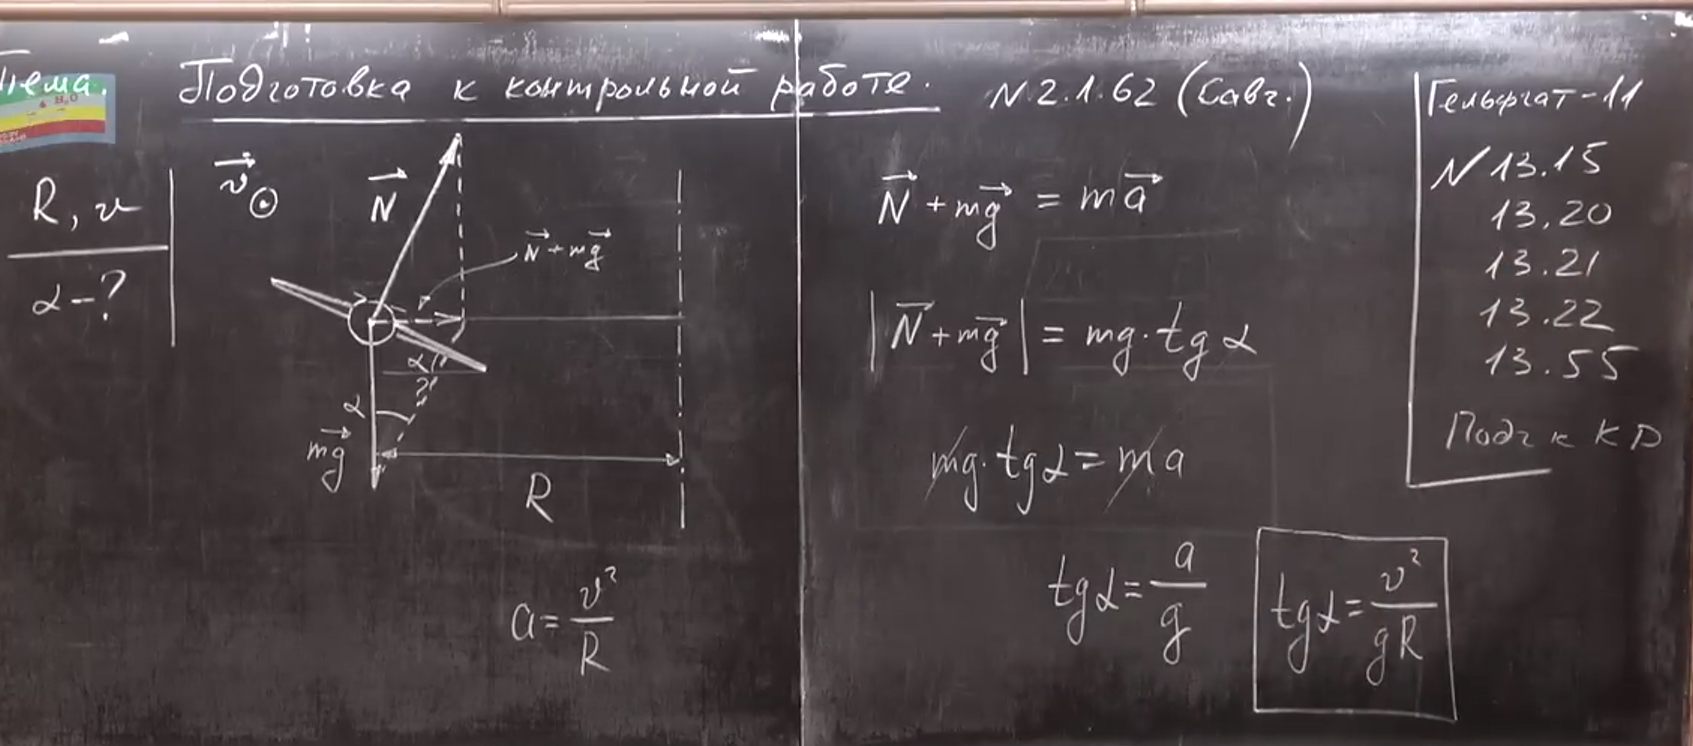 Тема. Подготовка к контрольной работе. N 2.1.62 (Савч.)
R, v
α-?
v⃗
N⃗
N⃗+mg⃗
α
α
mg⃗
R
a = v²/R
N⃗ + mg⃗ = ma⃗
|N⃗ + mg⃗| = mg·tg α
mg·tg α = ma
tg α = a/g
tg α = v²/gR
Гельфгат-11
N 13.15
13.20
13.21
13.22
13.55
Подг к КР